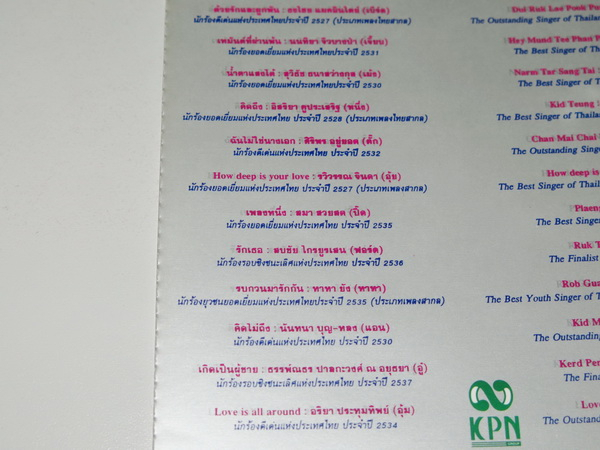 ด้วยรักและผูกพัน : ธงไชย แมคอินไตย์ (เบิร์ด)
นักร้องดีเด่นแห่งประเทศไทย ประจำปี 2527 (ประเภทเพลงไทยสากล)
เหมันต์ที่ผ่านพ้น : นนทิยา จิวบางป่า (เจี๊ยบ)
นักร้องยอดเยี่ยมแห่งประเทศไทย ประจำปี 2531
น้ำตาแสงไต้ : สุวิชัช ธนาสว่างกุล (เม้ง)
นักร้องยอดเยี่ยมแห่งประเทศไทย ประจำปี 2530
คิดถึง : อิสริยา คูประเสริฐ (หนึ่ง)
นักร้องยอดเยี่ยมแห่งประเทศไทย ประจำปี 2528 (ประเภทเพลงไทยสากล)
ฉันไม่ใช่นางเอก : ศิริพร อยู่ยอด (ตั๊ก)
นักร้องดีเด่นแห่งประเทศไทย ประจำปี 2532
How deep is your love : รวิวรรณ จินดา (อุ้ย)
นักร้องยอดเยี่ยมแห่งประเทศไทย ประจำปี 2527 (ประเภทเพลงสากล)
เพลงหนึ่ง : สมา สวยสด (ปิ๊ด)
นักร้องยอดเยี่ยมแห่งประเทศไทย ประจำปี 2535
รักเธอ : สบชัย ไกรยูรเสน (ฟอร์ด)
นักร้องรอบชิงชนะเลิศแห่งประเทศไทย ประจำปี 2536
รบกวนมารักกัน : ทาทา ยัง (ทาทา)
นักร้องยุวชนยอดเยี่ยมแห่งประเทศไทยประจำปี 2535 (ประเภทเพลงสากล)
คิดไม่ถึง : นันทนา บุญ-หลง (แอน)
นักร้องดีเด่นแห่งประเทศไทย ประจำปี 2530
เกิดเป็นผู้ชาย : ธรรพ์ณธร ปาลกะวงศ์ ณ อยุธยา (อู๋)
นักร้องรอบชิงชนะเลิศแห่งประเทศไทย ประจำปี 2537
Love is all around : อริยา ประทุมทิพย์ (อุ้ม)
นักร้องดีเด่นแห่งประเทศไทย ประจำปี 2534
Dui Ruk Lae Pook
The Outstanding Singer of Thailan
Hey Mund Tee Phan P
The Best Singer of T
Narm Tar Sang Tai :
The Best Singer of T
Kid Teung :
The Best Singer of Thailan
Chan Mai Chai
The Outstanding Singer
How deep is
The Best Singer of Thailan
Plaeng
The Best Singer
Ruk T
The Finalist
Rob Gua
The Best Youth Singer of T
Kid M
The Outstanding
Kerd Pen
The Fina
Love
The Outstand
KPN